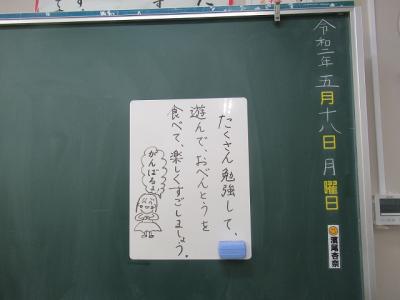 令和二年 五月十八日 月曜日
濵尾杏奈
たくさん勉強して、
遊んで、おべんとうを
食べて、楽しくすごしましょう。
がんばるよ